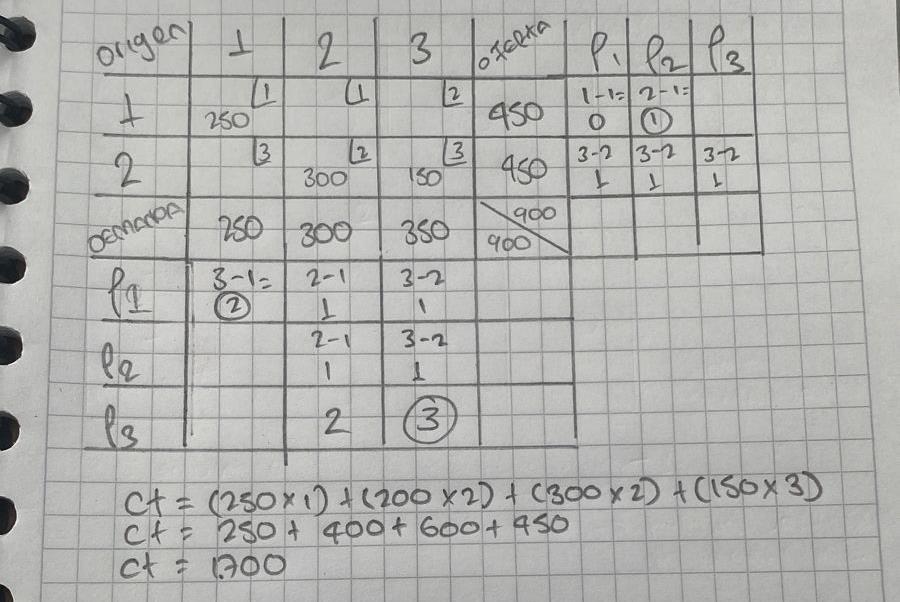 Origen 1 2 3 oferta P1 P2 P3
1 250 1 1 2 450 1-1= 0 2-1= 1
2 3 300 2 150 3 450 3-2 1 3-2 1 3-2 1
DEMANDA 250 300 350 900 900
P1 3-1= 2 2-1 1 3-2 1
P2 2-1 1 3-2 1
P3 2 3
Ct = (250x1) + (200x2) + (300x2) + (150x3)
Ct = 250 + 400 + 600 + 450
Ct = 1.700